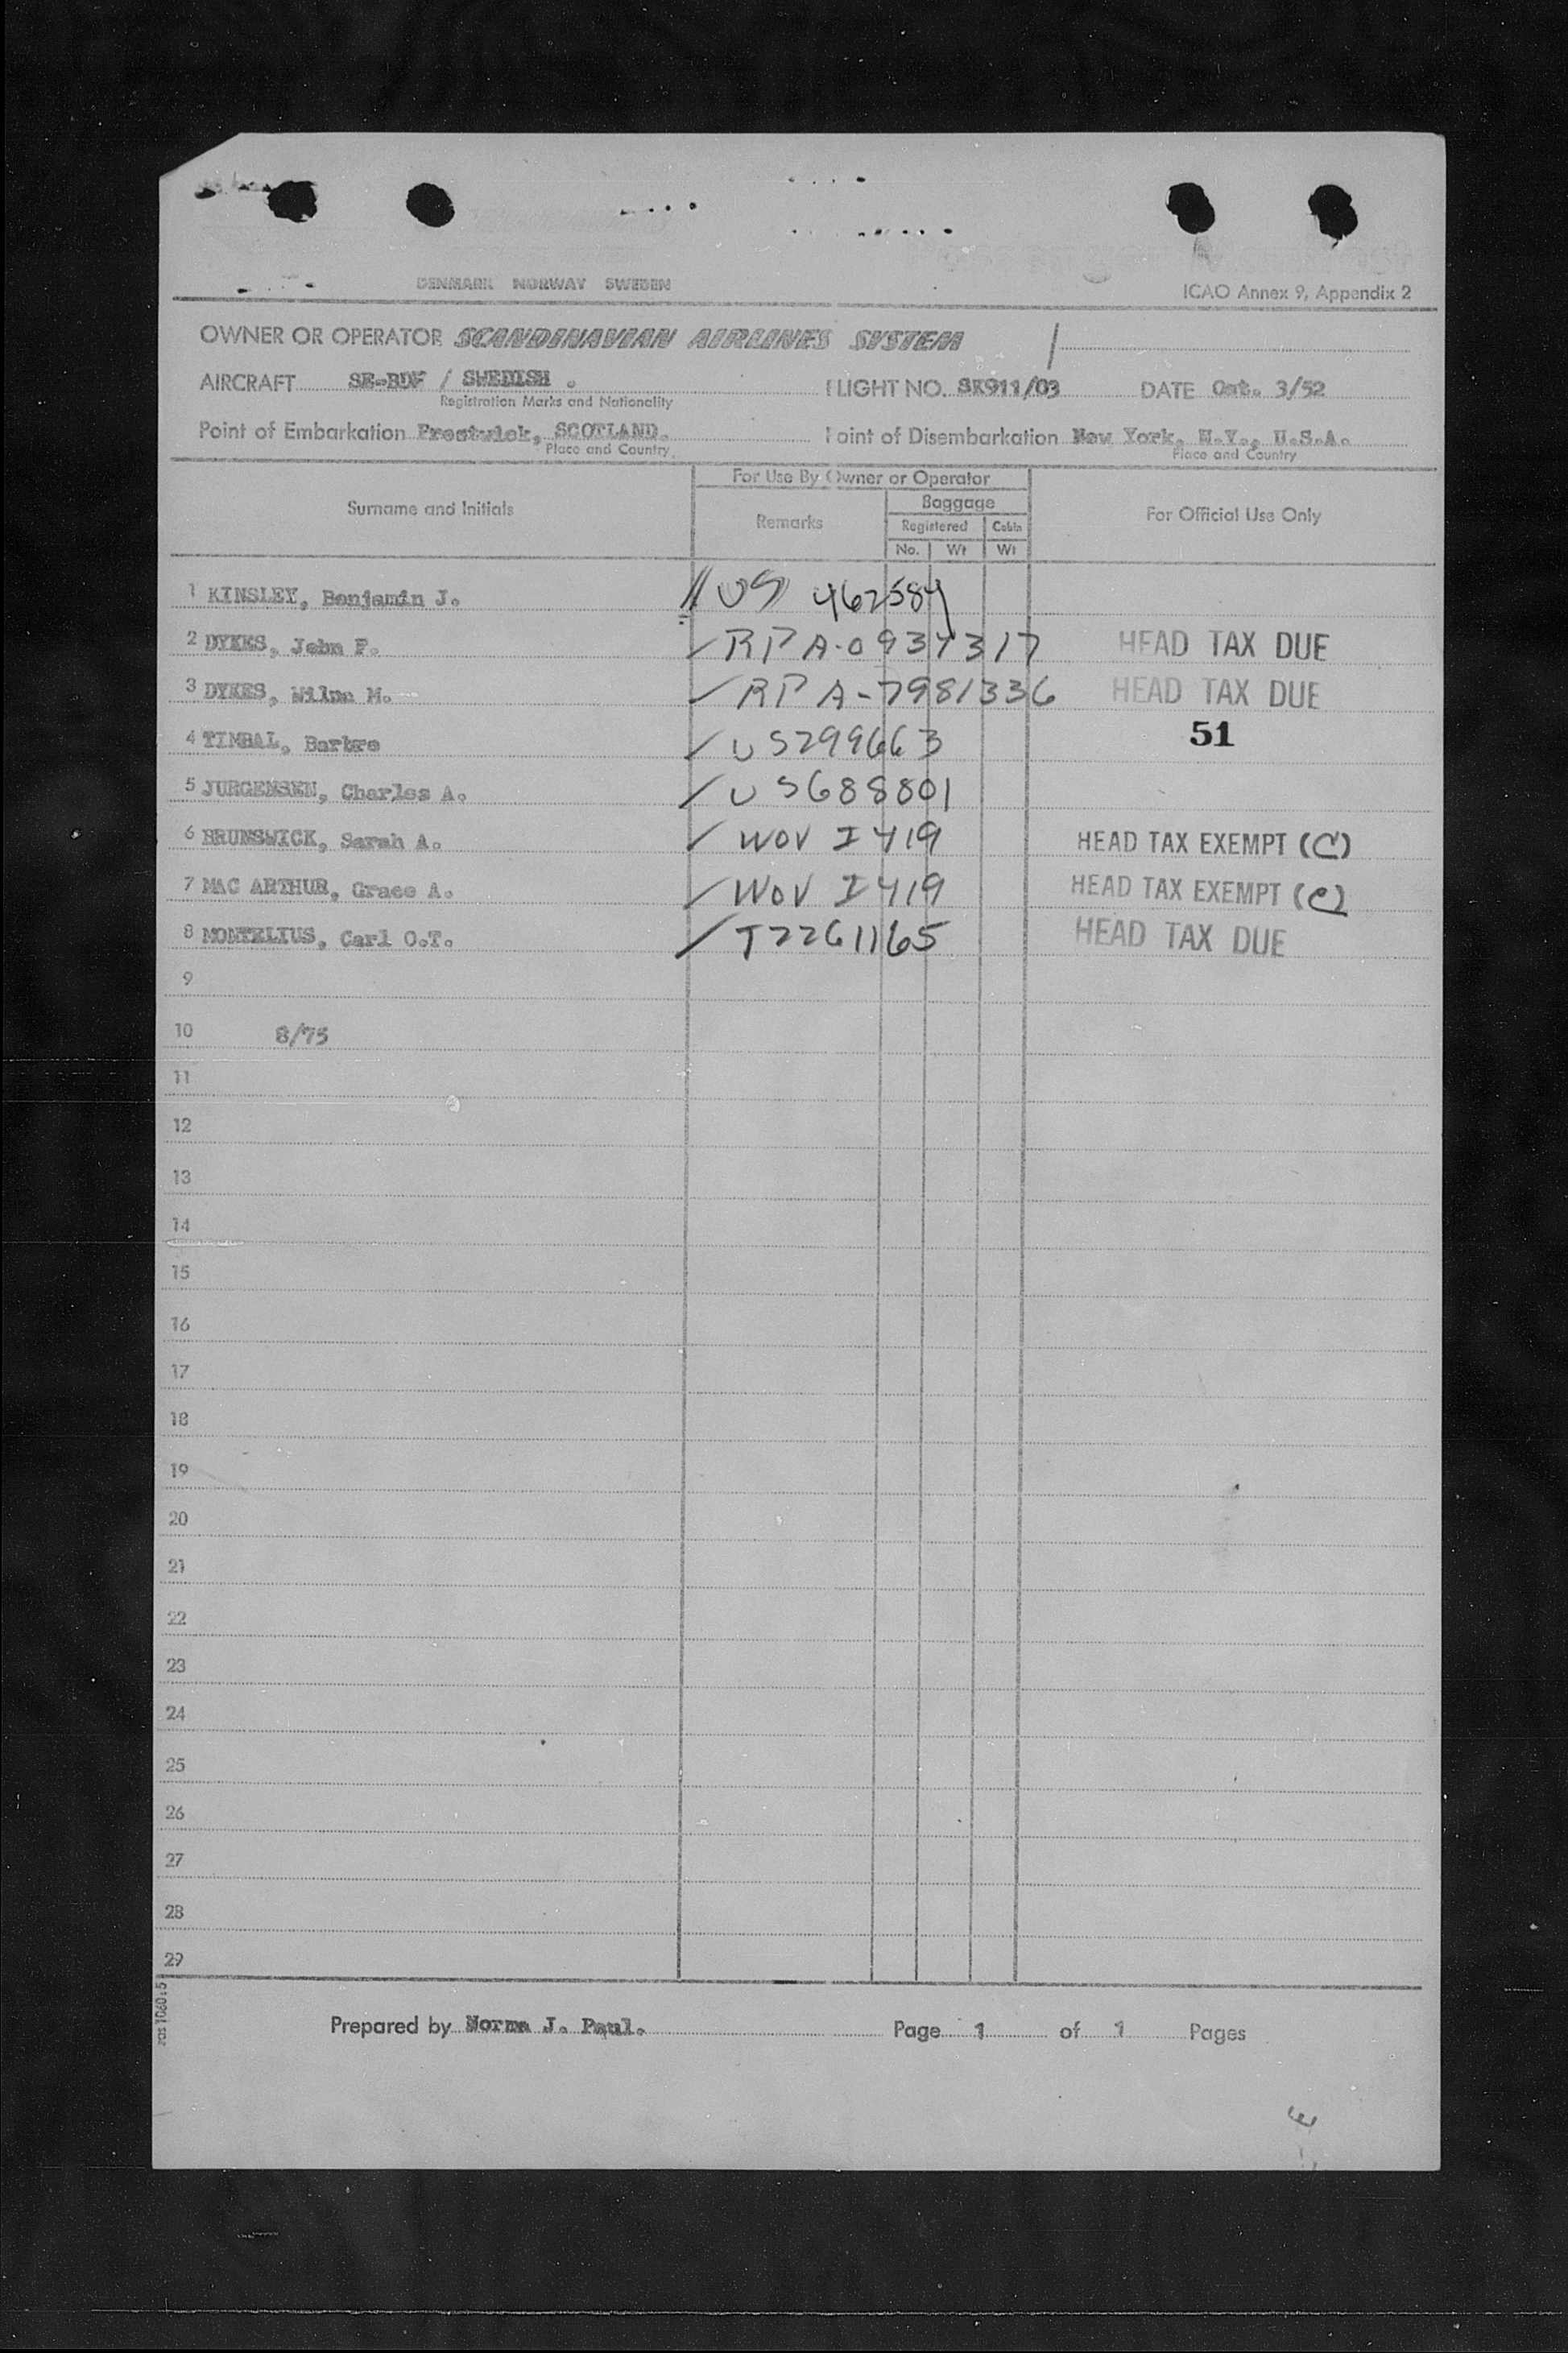 DENMARK NORWAY SWEDEN
ICAO Annex 9, Appendix 2
OWNER OR OPERATOR SCANDINAVIAN AIRLINES SYSTEM
AIRCRAFT SE-BDF / SWEDISH . FLIGHT NO. SK911/03 DATE Oct. 3/52
Registration Marks and Nationality
Point of Embarkation Prestwick, SCOTLAND. Point of Disembarkation New York, N.Y., U.S.A.
Place and Country Place and Country
For Use By Owner or Operator
Surname and Initials Remarks Baggage For Official Use Only
Registered Cabin
No. Wt Wt
1 KINSLEY, Benjamin J. US 462584
2 DYKES, John F. RP A-0934317 HEAD TAX DUE
3 DYKES, Wilma M. RP A-7981336 HEAD TAX DUE
4 TIMBAL, Barbro US299663 51
5 JURGENSEN, Charles A. US688801
6 BRUNSWICK, Sarah A. WOV I419 HEAD TAX EXEMPT (C)
7 MAC ARTHUR, Grace A. WOV I419 HEAD TAX EXEMPT (C)
8 MONTELIUS, Carl O.T. T2261165 HEAD TAX DUE
9
10 8/75
11
12
13
14
15
16
17
18
19
20
21
22
23
24
25
26
27
28
29
Prepared by Norma J. Paul. Page 1 of 1 Pages